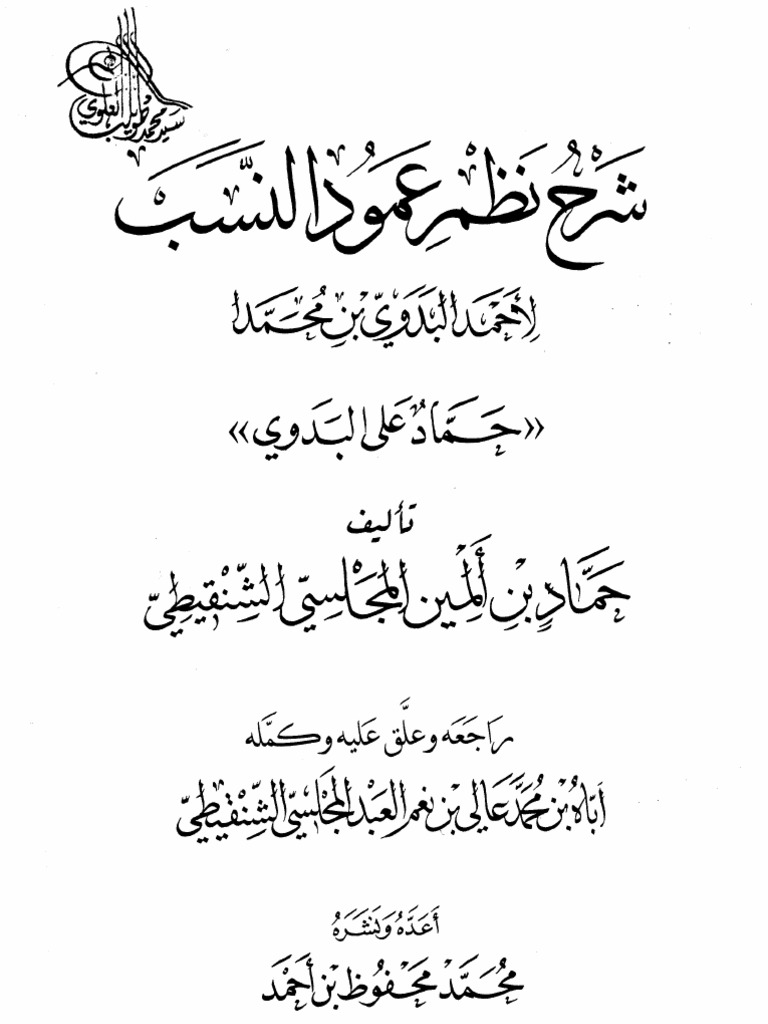 سيد محمد طويلب العلوي
شَرْحُ نَظْمِ عَمُودِ النَّسَبْ
لِأَحْمَدَ البَدَوِيِّ بْنِ مُحَمَّدا
«حَمَّادٌ عَلَى البَدَوِي»
تأليف
حَمَّادِ بْنِ أَلَمِينِ المَجْلِسِيِّ الشِّنْقِيطِيِّ
رَاجَعَه وعلَّق عَليه وكمَّله
أبّاهُ بْن مُحَمَّدْ عَالِي بْن نِعَم العَبْد المَجْلِسِيّ الشِّنْقِيطِيّ
أَعَدَّهُ وَنَشَرَهُ
مُحَمَّدْ مَحْفُوظ بْن أَحْمَد